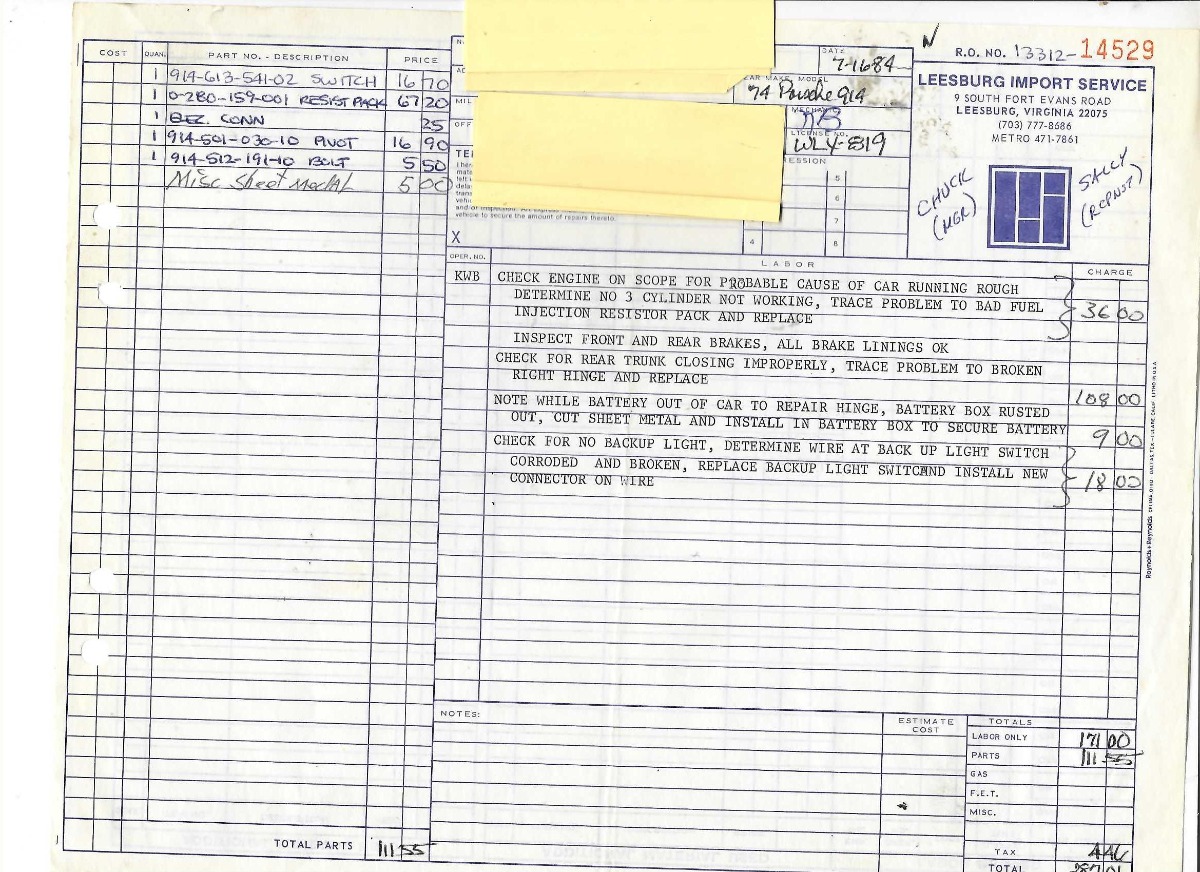 COST QUAN. PART NO. - DESCRIPTION PRICE
1 914-613-541-02 SWITCH 16 70
1 0-280-159-001 RESIST PACK 67 20
1 CONN 25
1 914-501-030-10 PIVOT 16 90
1 914-512-191-10 BOLT 5 50
Misc Sheet Metal 5 00
TOTAL PARTS 111 55
MIL
OFF
vehicle to secure the amount of repairs thereto.
X
DATE
7-16-84
CAR MAKE, MODEL
'74 Porsche 914
LICENSE NO.
WLY-819
5
6
7
4 8
N
R.O. NO. 13312-14529
LEESBURG IMPORT SERVICE
9 SOUTH FORT EVANS ROAD
LEESBURG, VIRGINIA 22075
(703) 777-8686
METRO 471-7861
CHUCK
(MGR)
SALLY
(RCPNST)
OPER. NO. LABOR CHARGE
KWB CHECK ENGINE ON SCOPE FOR PROBABLE CAUSE OF CAR RUNNING ROUGH
DETERMINE NO 3 CYLINDER NOT WORKING, TRACE PROBLEM TO BAD FUEL 36 00
INJECTION RESISTOR PACK AND REPLACE
INSPECT FRONT AND REAR BRAKES, ALL BRAKE LININGS OK
CHECK FOR REAR TRUNK CLOSING IMPROPERLY, TRACE PROBLEM TO BROKEN
RIGHT HINGE AND REPLACE 108 00
NOTE WHILE BATTERY OUT OF CAR TO REPAIR HINGE, BATTERY BOX RUSTED
OUT, CUT SHEET METAL AND INSTALL IN BATTERY BOX TO SECURE BATTERY 9 00
CHECK FOR NO BACKUP LIGHT, DETERMINE WIRE AT BACK UP LIGHT SWITCH
CORRODED AND BROKEN, REPLACE BACKUP LIGHT SWITCHAND INSTALL NEW 18 00
CONNECTOR ON WIRE
NOTES:
ESTIMATE
COST
TOTALS
LABOR ONLY 171 00
PARTS 111 55
GAS
F.E.T.
MISC.
TAX 4 46
TOTAL 287 01